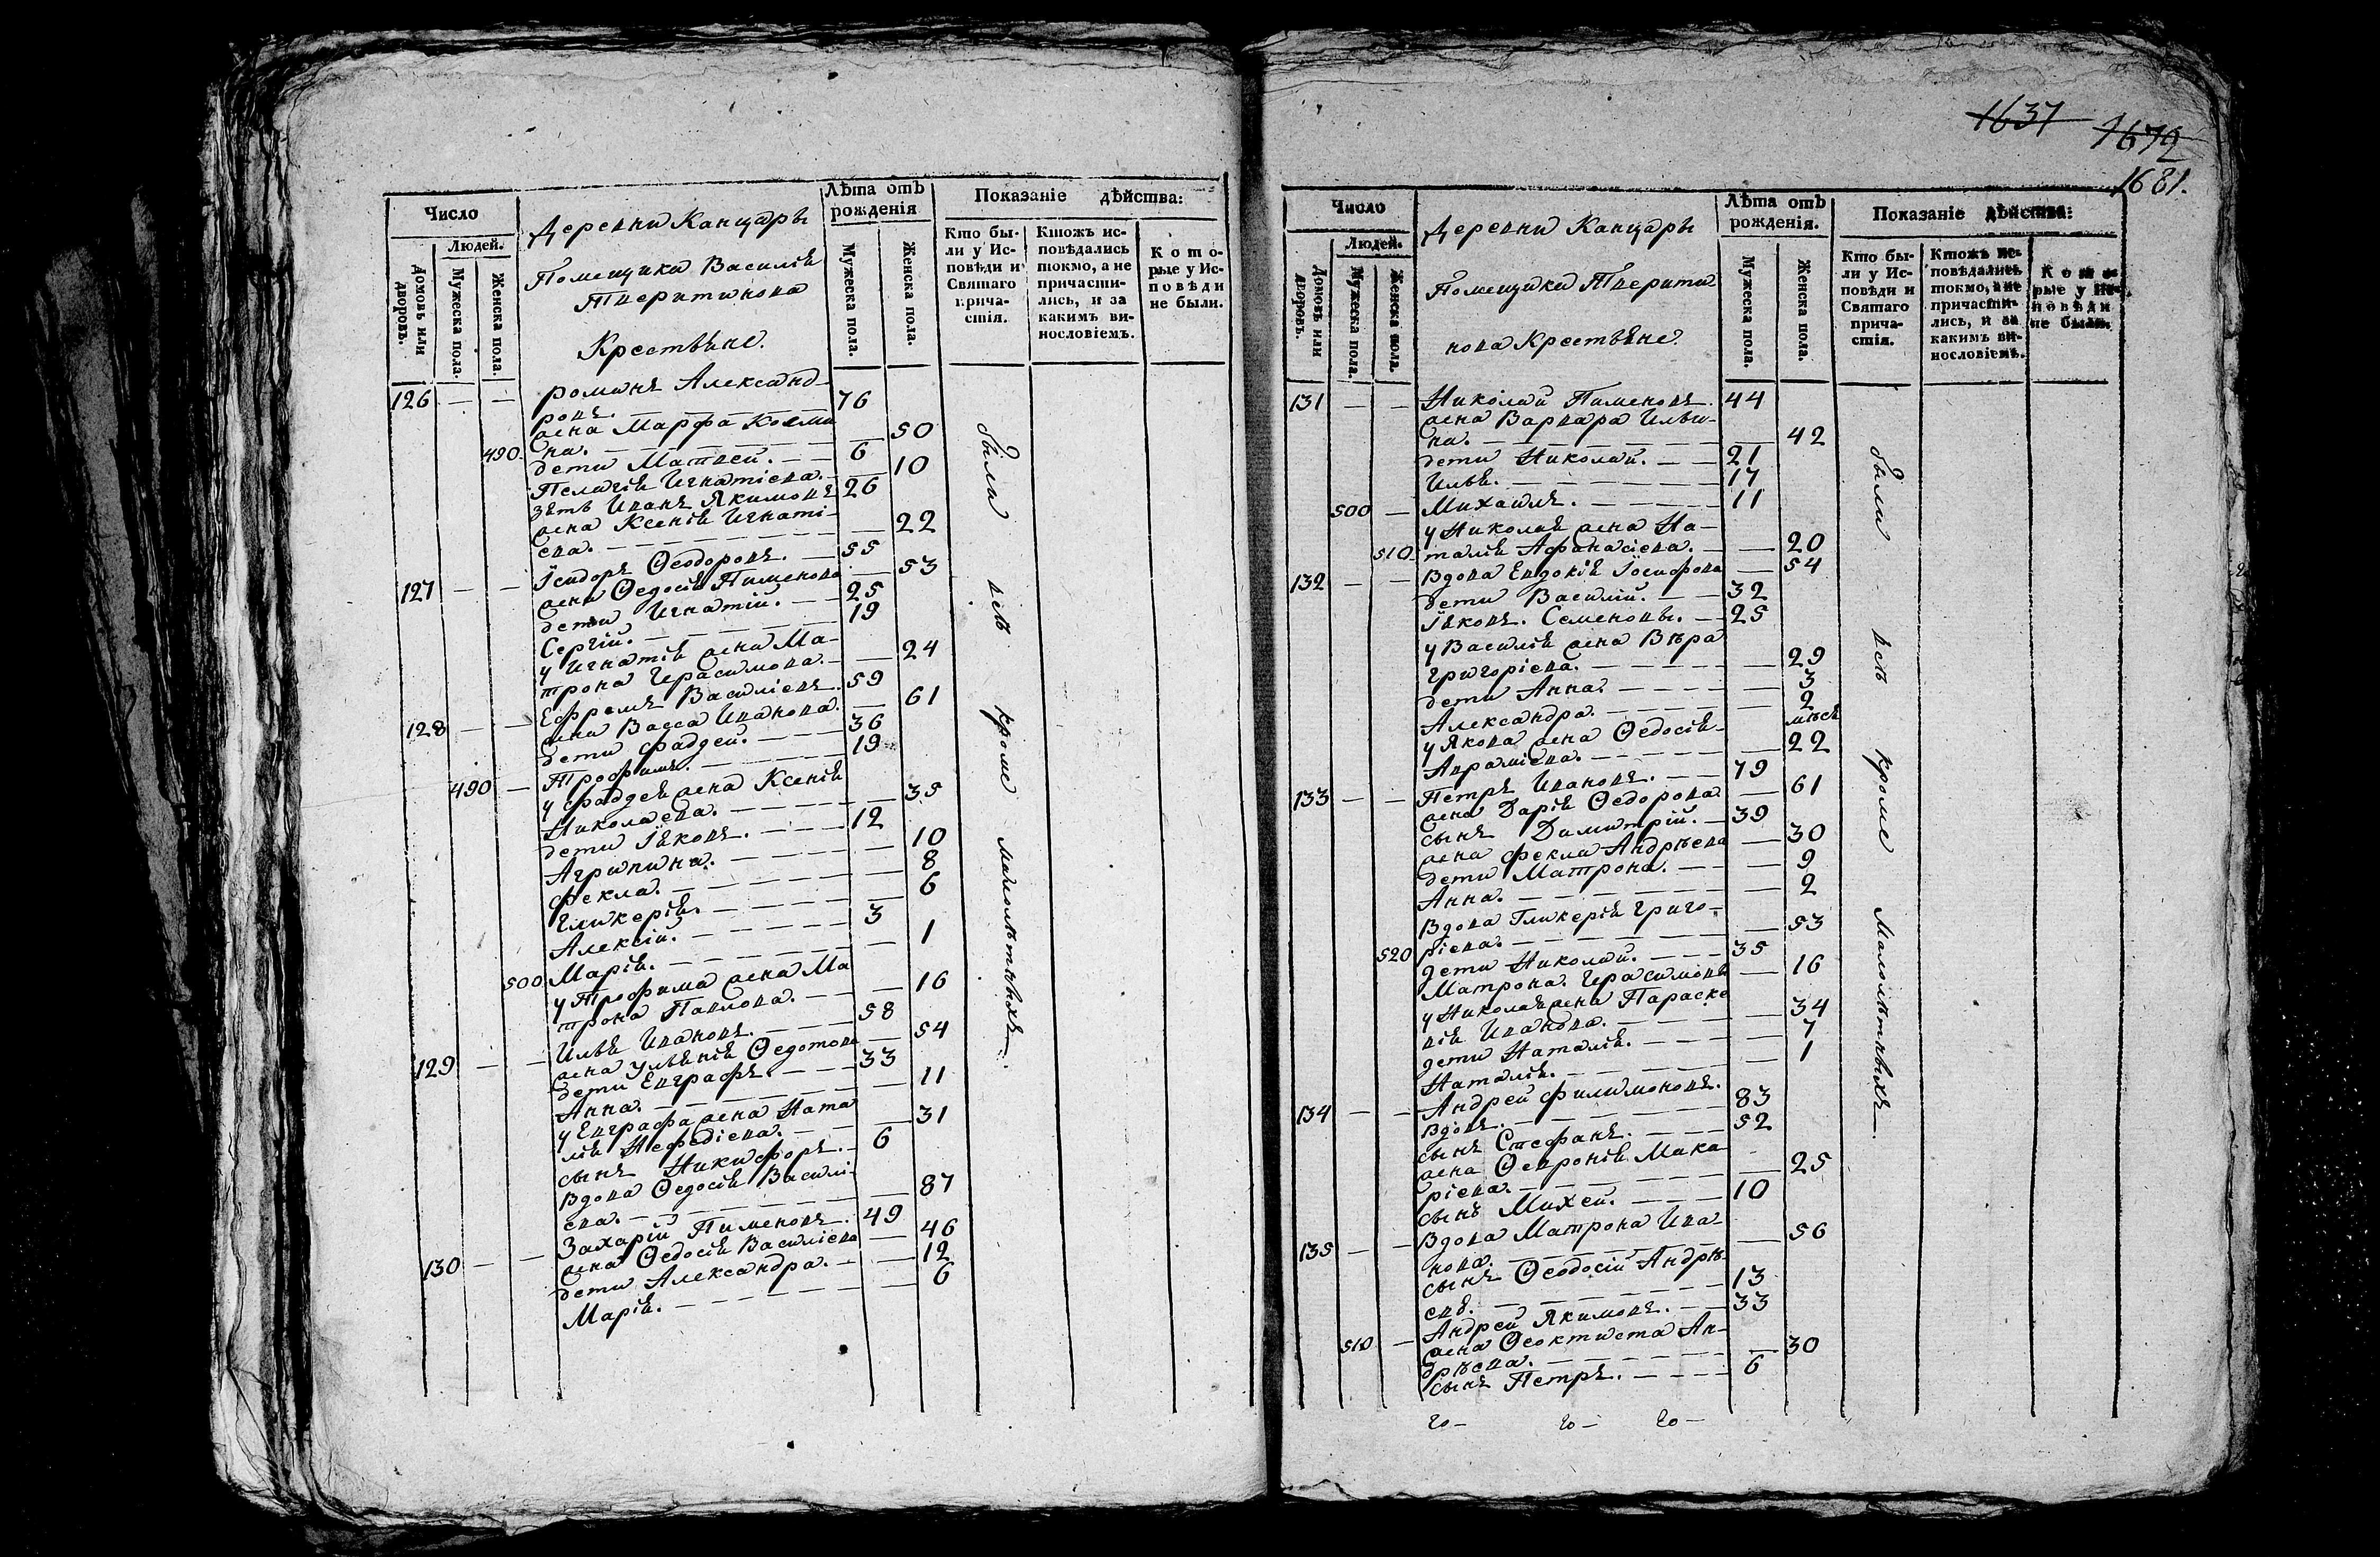 1637
1672
1681.
Число
Людей.
Домовъ или дворовъ.
Мужеска пола.
Женска пола.
Деревни Канцары
Помещика Василія
Тверитинова
Крестьяне.
Лѣта отъ рожденія
Мужеска пола.
Женска пола.
Показаніе дѣйства:
Кто были у Исповѣди и Святаго причастія.
Ктожъ исповѣдались токмо, а не причастились, и за какимъ винословіемъ.
Которые у Исповѣди не были.
126 — — Романъ Александ-
ровъ. 76
жена Марфа Козми
490. на. — 50
дети Матвей. — 6
Пелагія Игнатіева. — 10
зять Иванъ Якимовъ 26
жена Ксенія Игнаті-
ева. — 22
127 — — Ісидоръ Ѳеодоровъ. — 55
жена Ѳедосія Пименова — 53
дети Игнатій. — 25
Сергій. — 19
у Игнатія жена Ма-
трона Герасимова. — 24
128 — — Ефремъ Василіевъ. 59
жена Васса Иванова. — 61
дети Фаддей. — 36
490 — Трофимъ. — 19
у Фаддея жена Ксенія
Николаева. — 35
дети Іяковъ. — 12
Агрипина. — 10
Фекла. — 8
Гликерія. — 6
Алексій. — 3
500. Марія. — 1
у Трофима жена Ма
трона Павлова. — 16
129 — — Илья Ивановъ. — 58
жена Ульянія Ѳедотова — 54
дети Евграфъ. — 33
Анна. — 11
у Евграфа жена Ната
лія Нефедіева. — 31
сынъ Никифоръ. — 6
вдова Ѳедосія Василі-
ева. — 87
130 — — Захарій Пименовъ. 49
жена Ѳедосія Василіева — 46
дети Александра. — 12
Марія. — 6
были всѣ кроме малолѣтныхъ.
Число
Людей.
Домовъ или дворовъ.
Мужеска пола.
Женска пола.
Деревни Канцары
Помещика Тверити
нова Крестьяне.
Лѣта отъ рожденія.
Мужеска пола.
Женска пола.
Показаніе дѣйства:
Кто были у Исповѣди и Святаго причастія.
Ктожъ исповѣдались токмо, а не причастились, и за какимъ винословіемъ.
Которые у Исповѣди не были.
131 — — Николай Пименовъ. 44
жена Варвара Ильи-
на. — 42
дети Николай. — 21
Илья. — 17
500 — Михаилъ. — 11
у Николая жена На-
510. талія Афанасіева. — 20
132 — — вдова Евдокія Іосифова — 54
дети Василій. — 32
Іяковъ. Семеновы. — 25
у Василія жена Вѣра
Григоріева. — 29
дети Анна. — 3
Александра. — 2
мѣся
у Якова жена Ѳедосія
Авраміева. — 22
133 — — Петръ Ивановъ. — 79
жена Дарія Ѳедорова — 61
сынъ Димитрій. — 39
жена Фекла Андрѣева — 30
дети Матрона. — 9
Анна. — 2
вдова Гликерія Григо-
520 ріева. — 53
дети Николай. — 35
Матрона. Герасимовы — 16
у Николая жена Параске
вія Иванова. — 34
дети Наталія. — 7
Наталія. — 1
134 — — Андрей Филимоновъ.
вдовъ. — 83
сынъ Стефанъ. — 52
жена Ѳевронія Мака
ріева. — 25
сынъ Михей. — 10
135 — — вдова Матрона Ива-
нова. — 56
сынъ Ѳеодосій Андрѣ-
евъ. — 13
Андрей Якимовъ. — 33
510 — жена Ѳеоктиста Ан-
дрѣева. — 30
сынъ Петръ. — 6
были всѣ кроме малолѣтныхъ.